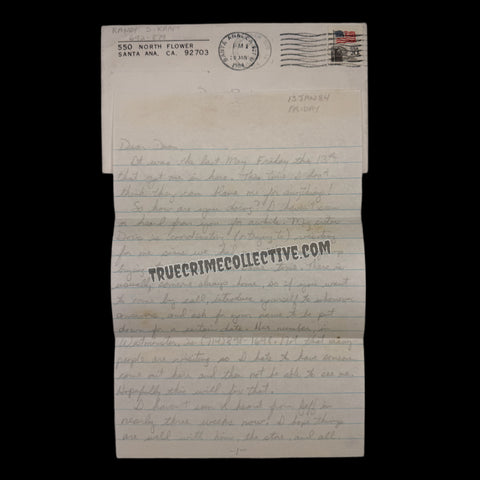 RANDY S. KRAFT
550 NORTH FLOWER
SANTA ANA, CA. 92703
SANTA ANA, CA
PM
JAN
1984
13 JAN 84
FRIDAY
Dear
It was the last May Friday the 13th
that got me in here. This time I don't
think they can blame me for anything!
So how are you doing? I haven't seen
or heard from you for awhile. My sister
is coordinating (or trying to) visiting
for me since
TRUECRIMECOLLECTIVE.COM
There is
usually someone always home, so if you want
to come by call, introduce yourself to whomever
answers and ask for your name to be put
down for a certain date. Her number, in
Westminster, is
Not that many
people are visiting so I hate to have someone
come out here and then not be able to see me.
Hopefully this will fix that.
I haven't seen or heard from Jeff in
nearly three weeks now. I hope things
are well with him, the store, and all.
-1-